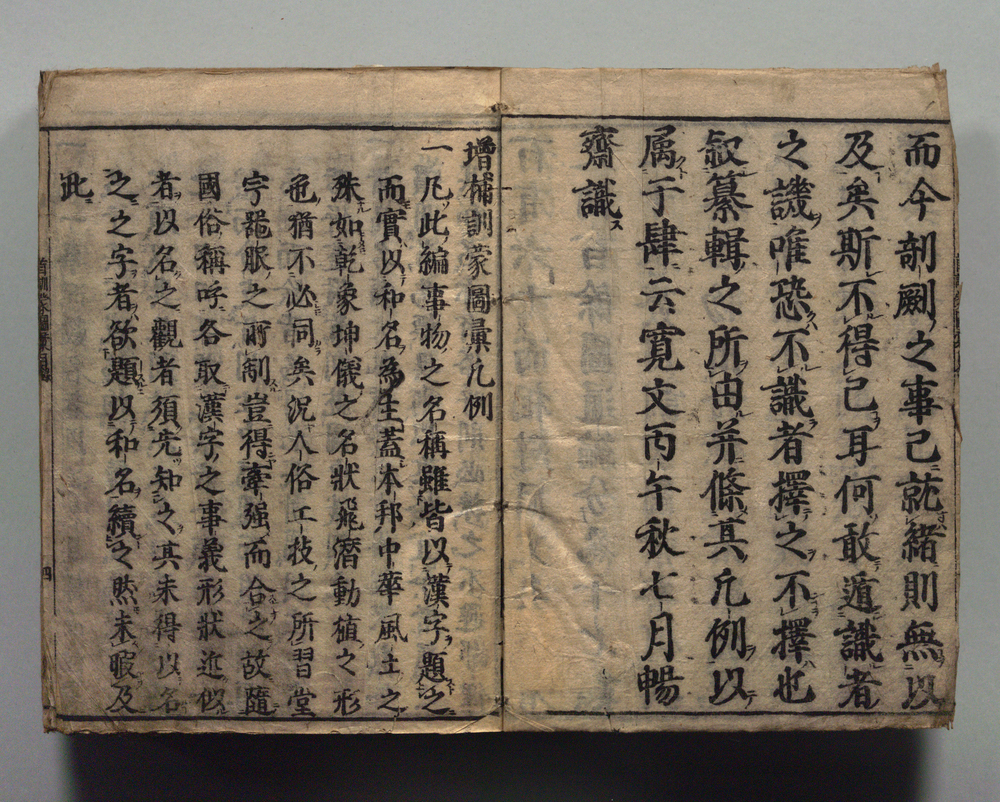 而今剞劂之事已就緒則無以
及矣斯不得已耳何敢遁識者
之譏唯恐不識者擇之不擇也
叙纂輯之所由并條其凡例以
属于肆云寛文丙午秋七月暢
齋識
增補訓蒙圖彙凡例
一凡此編事物之名稱雖皆以漢字題之
而實以和名為主蓋本邦中華風土之
殊如乾象坤儀之名狀飛潛動植之形
色猶不必同矣況人俗工技之所習堂
宇器服之所制豈得牽强而合之故隨
國俗稱呼各取漢字之事義形狀近似
者以名之觀者須先知之其未得以名
之之字者欲題以和名續之然未暇及
此
四